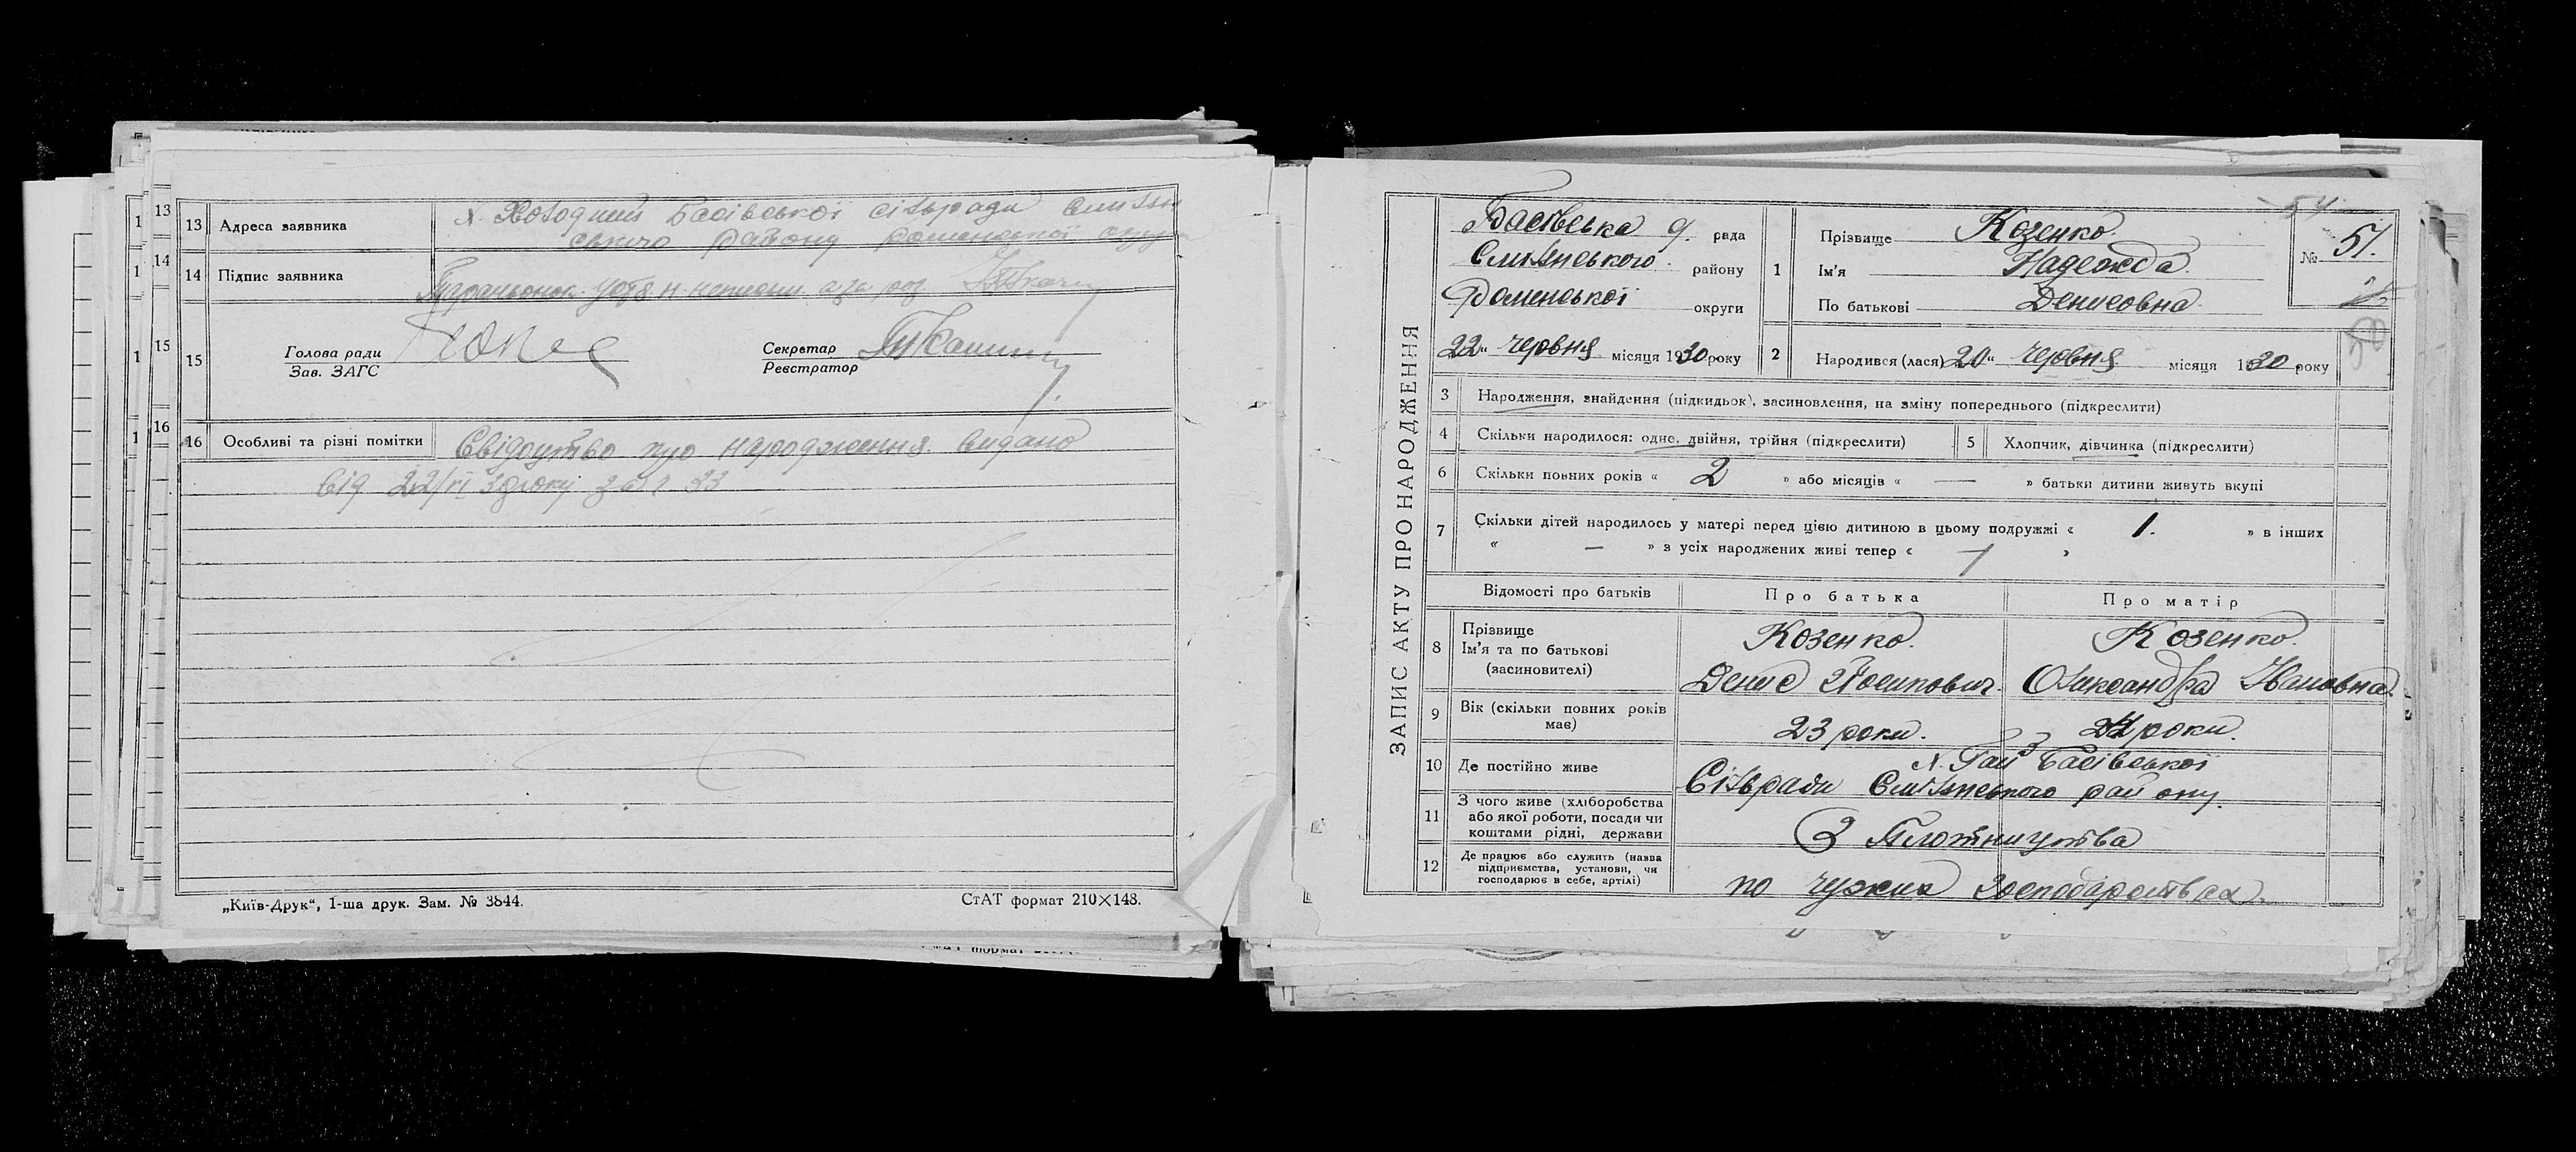 13 Адреса заявника х. Холодний Басівської сільради Смілян
ського району роменської округи
14 Підпис заявника
15 Голова ради
Зав. ЗАГС
Секретар
Реєстратор
16 Особливі та різні помітки Свідоцтво про народження видано
від 22/VI 30 року за № 33
„Київ-Друк“, 1-ша друк. Зам. № 3844.
СтАТ формат 210×148.
ЗАПИС АКТУ ПРО НАРОДЖЕННЯ
Басівська с. рада
Смілянського району
Роменської округи
22 „ червня місяця 1930 року
1 Прізвище Козенко
Ім'я Надежда
По батькові Денисовна
№ 51.
2 Народився (лася) 20 „ червня місяця 1930 року
3 Народження, знайдення (підкидьок), засиновлення, на зміну попереднього (підкреслити)
4 Скільки народилося: одне, двійня, трійня (підкреслити) 5 Хлопчик, дівчинка (підкреслити)
6 Скільки повних років « 2 » або місяців « — » батьки дитини живуть вкупі
7 Скільки дітей народилось у матері перед цією дитиною в цьому подружжі « 1. » в інших
« — » з усіх народжених живі тепер « 1 »
Відомості про батьків Про батька Про матір
8 Прізвище Козенко. Козенко.
Ім'я та по батькові
(засиновителі) Денис Йосипович. Олександра Івановна.
9 Вік (скільки повних років має) 23 роки. роки.
10 Де постійно живе х. Гай Басівської
Сільради Смілянського району.
11 З чого живе (хліборобства або якої роботи, посади чи коштами рідні, держави З Плотництва
12 Де працює або служить (назва підприємства, установи, чи господарює в себе, артілі) по чужих господарствах.